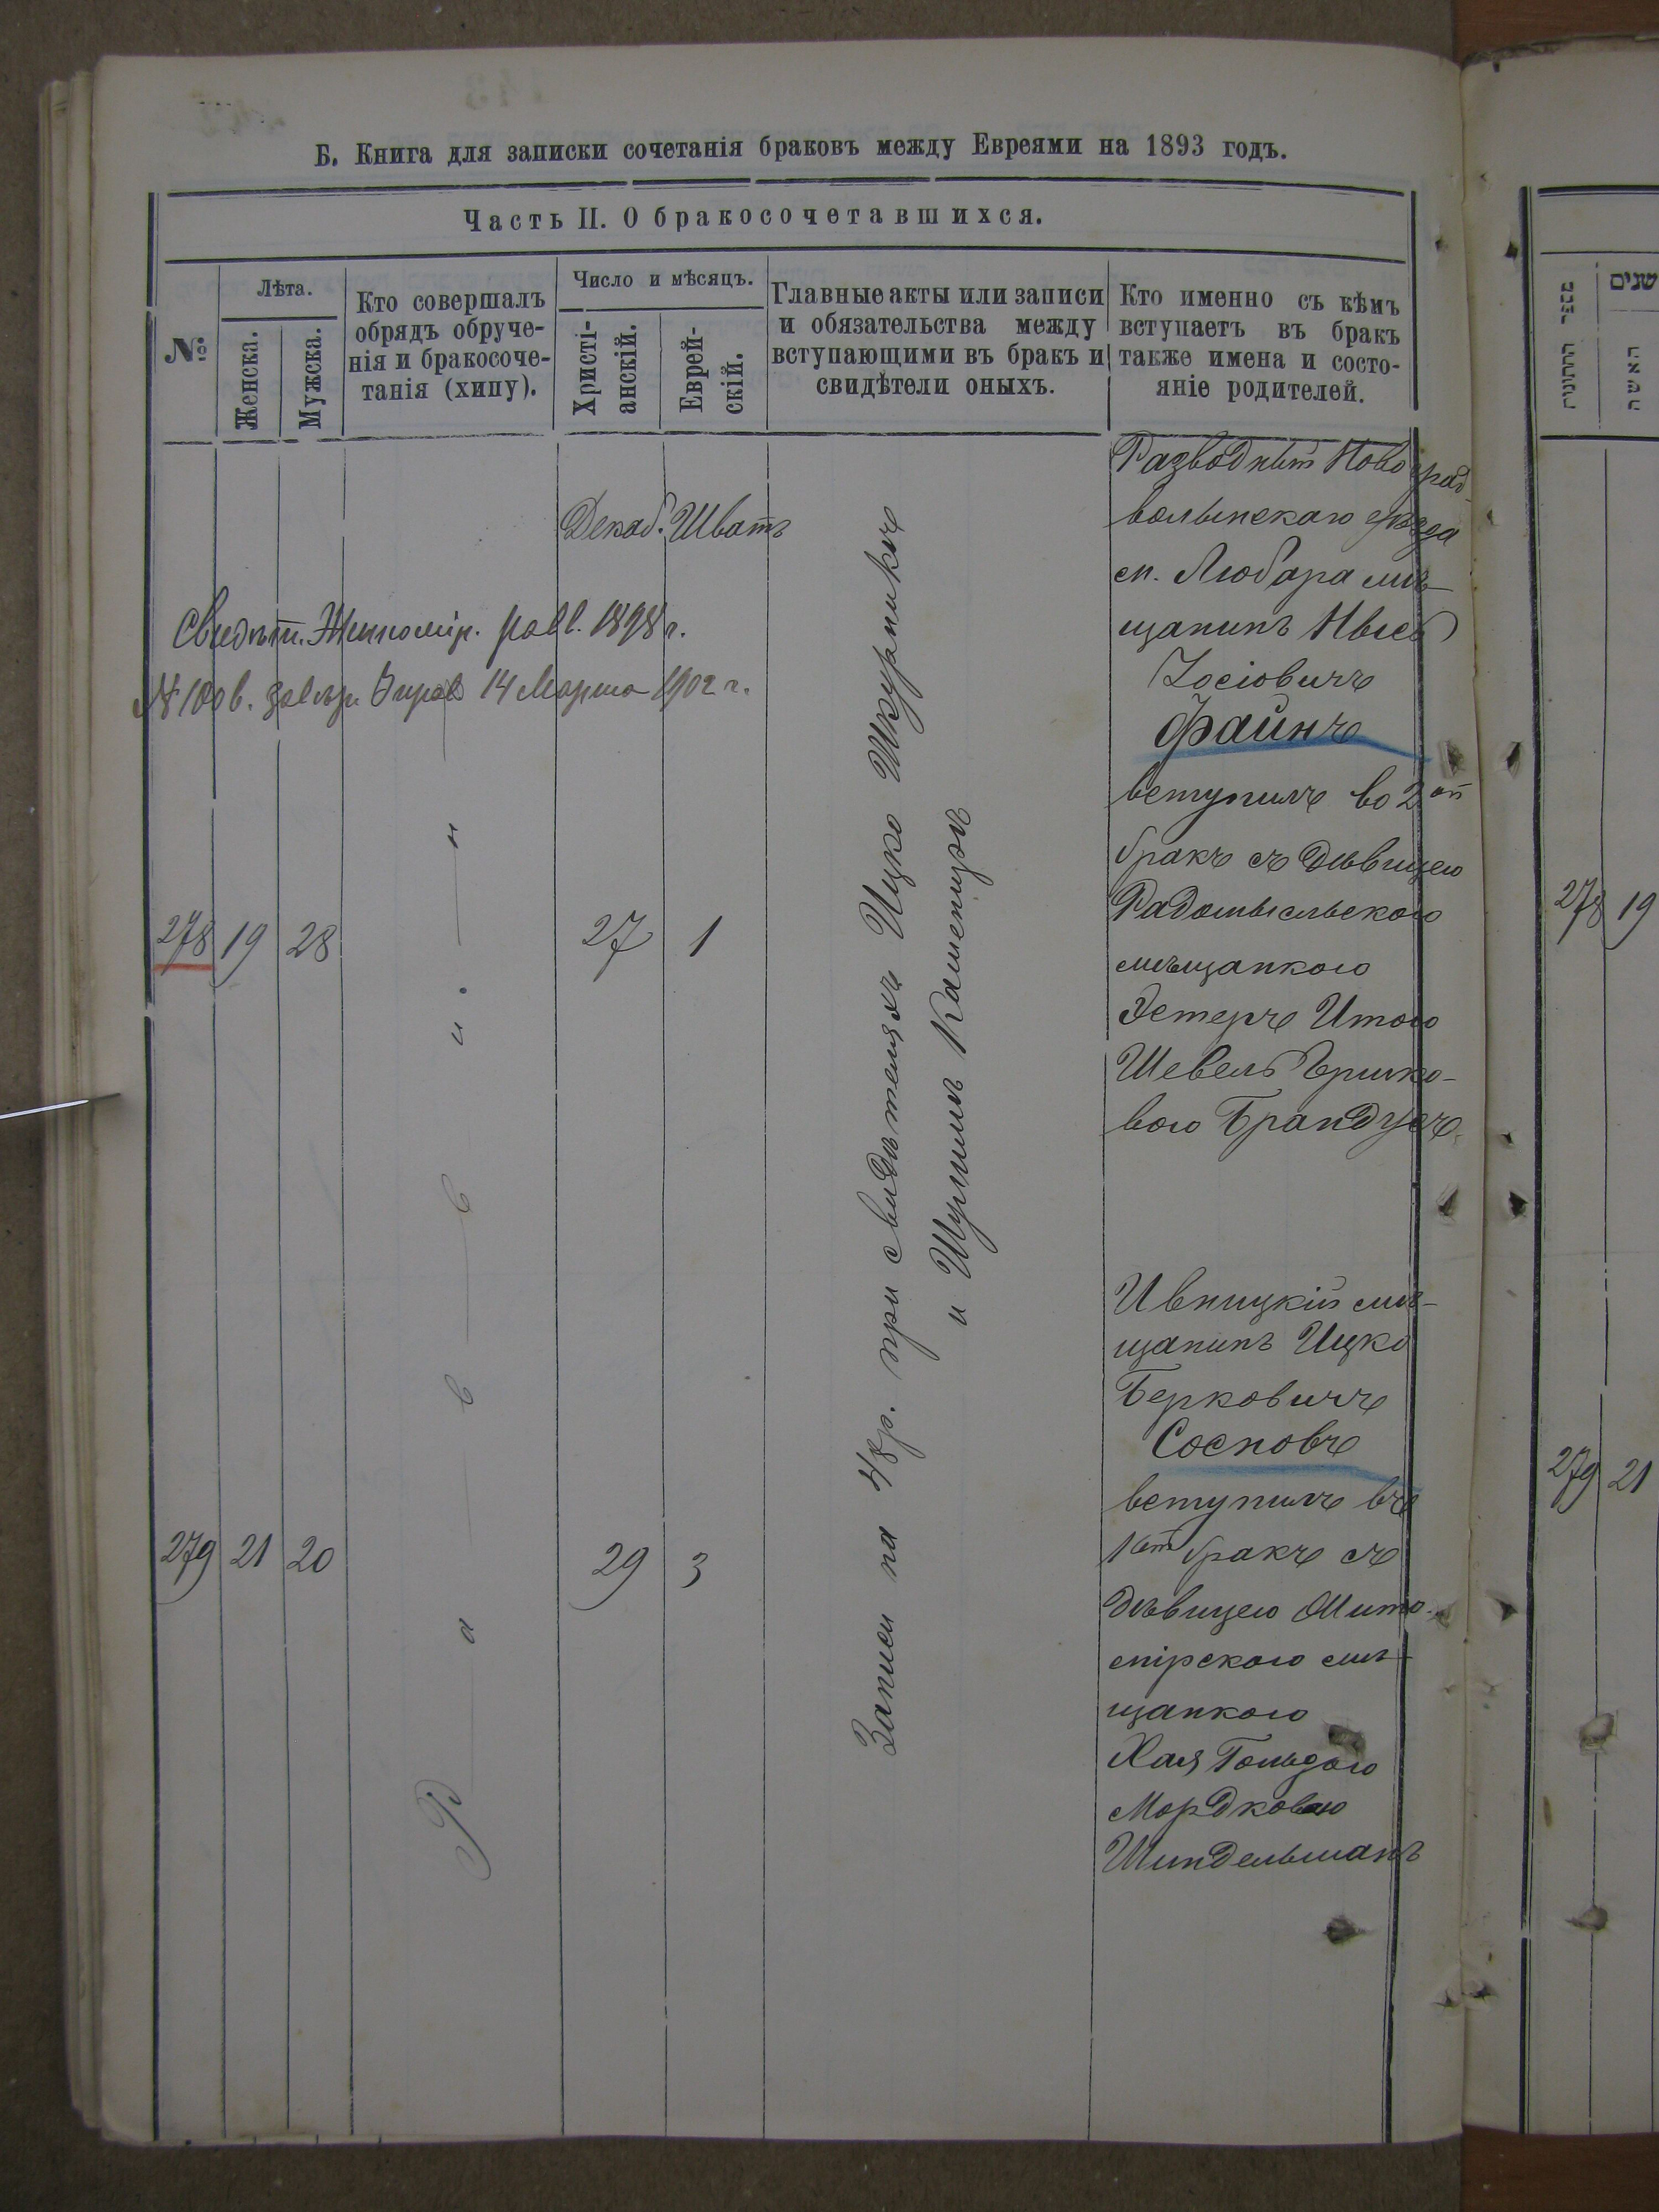 Б. Книга для записки сочетанія браковъ между Евреями на 1893 годъ.
Часть II. О бракосочетавшихся.
№
Лѣта.
Женска.
Мужска.
Кто совершалъ
обрядъ обруче-
нія и бракосоче-
танія (хипу).
Число и мѣсяцъ.
Христі-
анскій.
Еврей-
скій.
Главные акты или записи
и обязательства между
вступающими въ бракъ и
свидѣтели оныхъ.
Кто именно съ кѣмъ
вступаетъ въ бракъ
также имена и состо-
яніе родителей.
Декаб. Шватъ
Свидѣт. Житомір. равв. 1898 г.
14 Марта 1902 г.
278 19 28
27 1
Раввинъ
Записи на 48 р. при свидѣтеляхъ Ицко Шкурникъ
и Шулимъ Камениръ
Разводный Новоград-
волынскаго уѣзда
м. Любара мѣ-
щанинъ
Іосіовичъ
Файнъ
вступилъ во 2ой
бракъ съ дѣвицею
Радомысльскою
мѣщанкою
Эстеръ Итою
Шевель Бершко-
вою Брандусъ
279 21 20
29 3
Ивницкій мѣ-
щанинъ Ицко
Берковичъ
Сосновъ
вступилъ въ
1ый бракъ съ
дѣвицею Жито-
мірскою мѣ-
щанкою
Хая Гольдою
Мордковою
Шиндельманъ
מספר החתונות
שנים
האשה
278 19
279 21